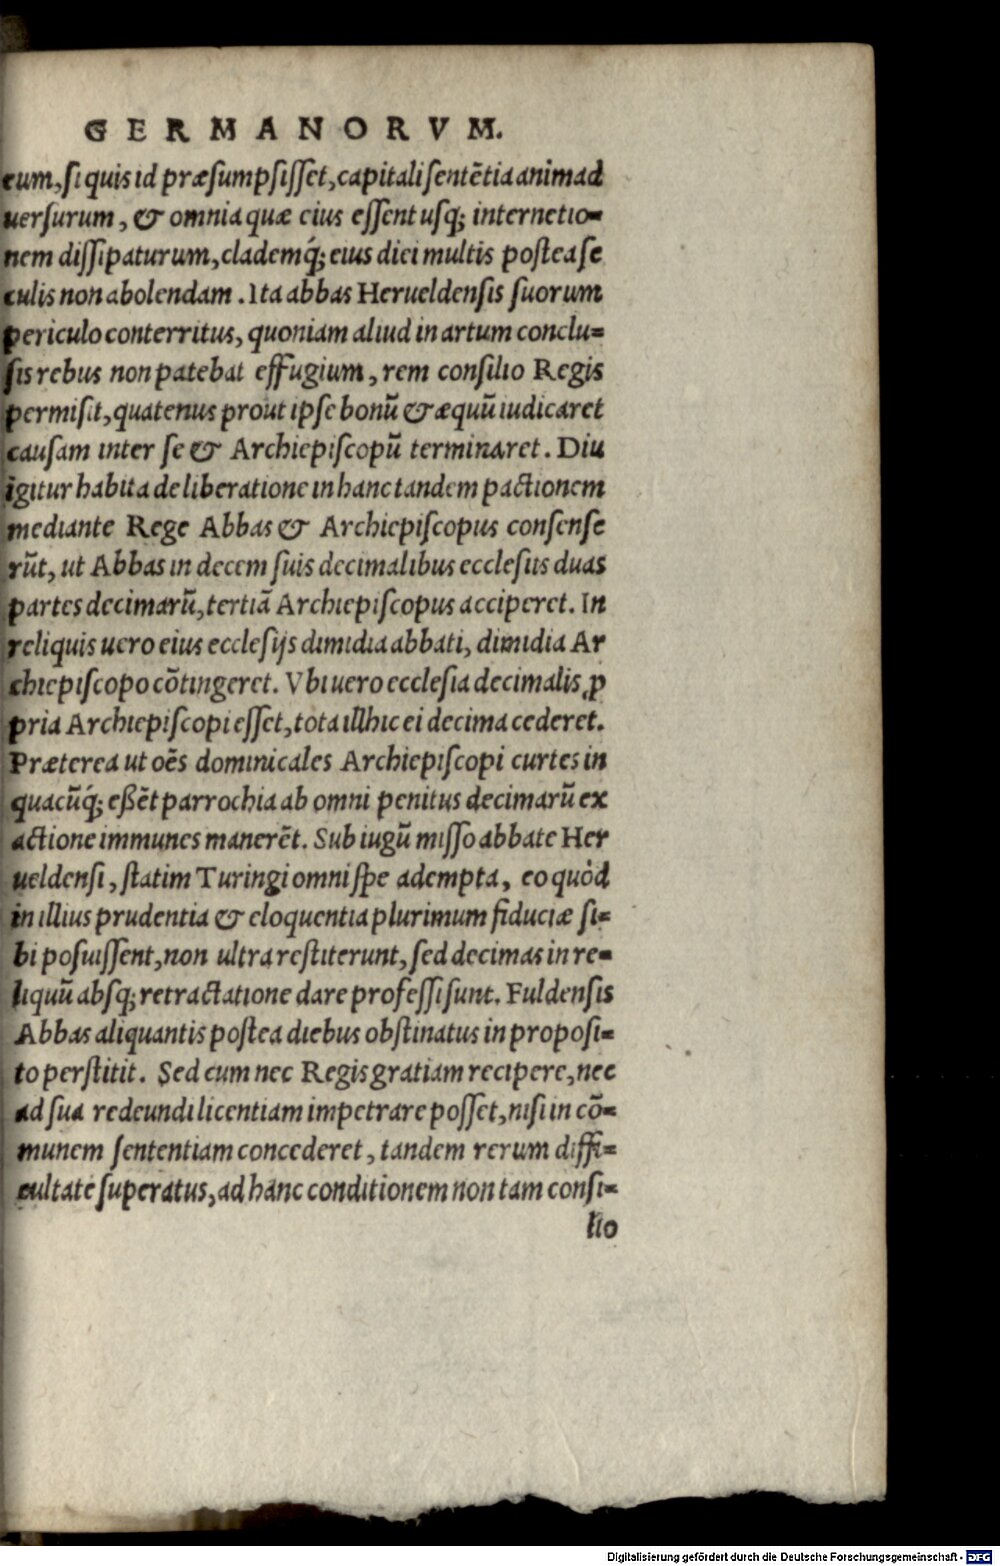 GERMANORVM.
eum, si quis id præsumpsisset, capitali sentẽtia animad
uersurum, & omnia quæ eius essent usq; internetio=
nem dissipaturum, clademq́; eius diei multis postea se
culis non abolendam. Ita abbas Herueldensis suorum
periculo conterritus, quoniam aliud in artum conclu=
sis rebus non patebat effugium, rem consilio Regis
permisit, quatenus prout ipse bonũ & æquũ iudicaret
causam inter se & Archiepiscopũ terminaret. Diu
igitur habita deliberatione in hanc tandem pactionem
mediante Rege Abbas & Archiepiscopus consense
rũt, ut Abbas in decem suis decimalibus ecclesiis duas
partes decimarũ, tertiã Archiepiscopus acciperet. In
reliquis uero eius ecclesijs dimidia abbati, dimidia Ar
chiepiscopo cõtingeret. Vbi uero ecclesia decimalis ꝓ
pria Archiepiscopi esset, tota illhic ei decima cederet.
Præterea ut oẽs dominicales Archiepiscopi curtes in
quacũq́; eßẽt parrochia ab omni penitus decimarũ ex
actione immunes manerẽt. Sub iugũ misso abbate Her
ueldensi, statim Turingi omni spe adempta, eo quòd
in illius prudentia & eloquentia plurimum fiduciæ si=
bi posuissent, non ultra restiterunt, sed decimas in re=
liquũ absq; retractatione dare professi sunt. Fuldensis
Abbas aliquantis postea diebus obstinatus in proposi=
to perstitit. Sed cum nec Regis gratiam recipere, nec
ad sua redeundi licentiam impetrare posset, nisi in cõ=
munem sententiam concederet, tandem rerum diffi=
cultate superatus, ad hanc conditionem non tam consi=
lio
Digitalisierung gefördert durch die Deutsche Forschungsgemeinschaft - DFG